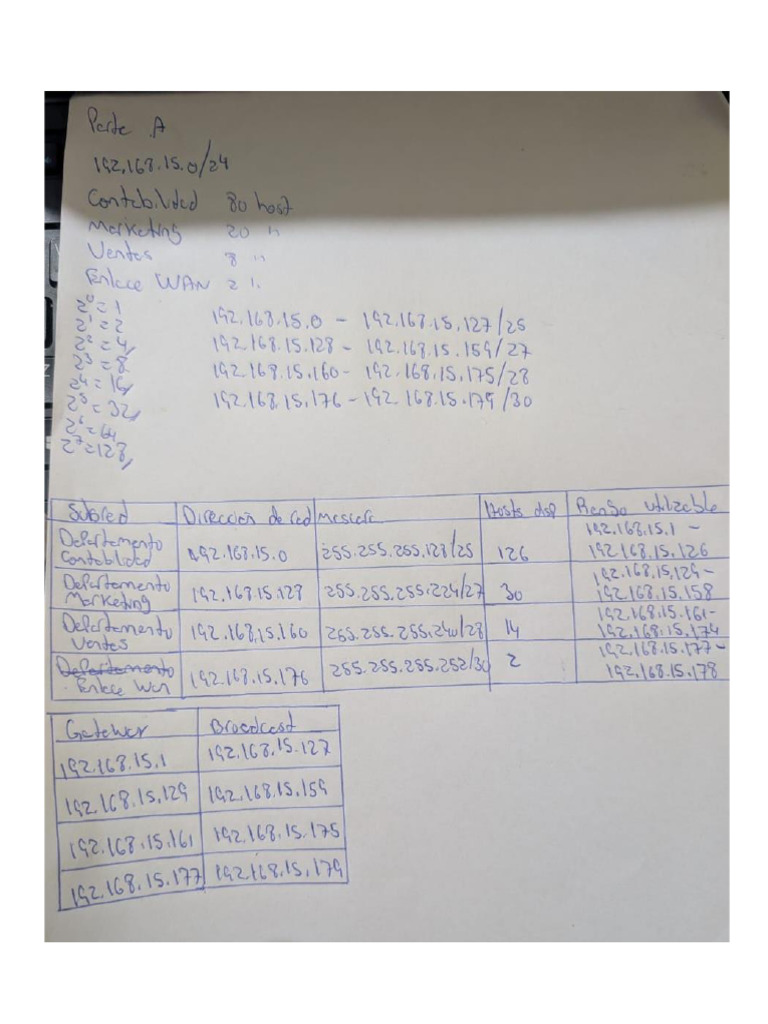 Parte A
192.168.15.0/24
Contabilidad 80 host
Marketing 20 "
Ventas 8 "
Enlace WAN 2 "
2⁰=1
2¹=2
2²=4
2³=8
2⁴=16
2⁵=32
2⁶=64
2⁷=128
192.168.15.0 - 192.168.15.127/25
192.168.15.128 - 192.168.15.159/27
192.168.15.160 - 192.168.15.175/28
192.168.15.176 - 192.168.15.179/30
Subred Dirección de red Mascara Hosts disp Rango utilizable
Departamento Contabilidad 192.168.15.0 255.255.255.128/25 126 192.168.15.1 - 192.168.15.126
Departamento Marketing 192.168.15.128 255.255.255.224/27 30 192.168.15.129 - 192.168.15.158
Departamento Ventas 192.168.15.160 255.255.255.240/28 14 192.168.15.161 - 192.168.15.174
Departamento Enlace Wan 192.168.15.176 255.255.255.252/30 2 192.168.15.177 - 192.168.15.178
Gateway Broadcast
192.168.15.1 192.168.15.127
192.168.15.129 192.168.15.159
192.168.15.161 192.168.15.175
192.168.15.177 192.168.15.179